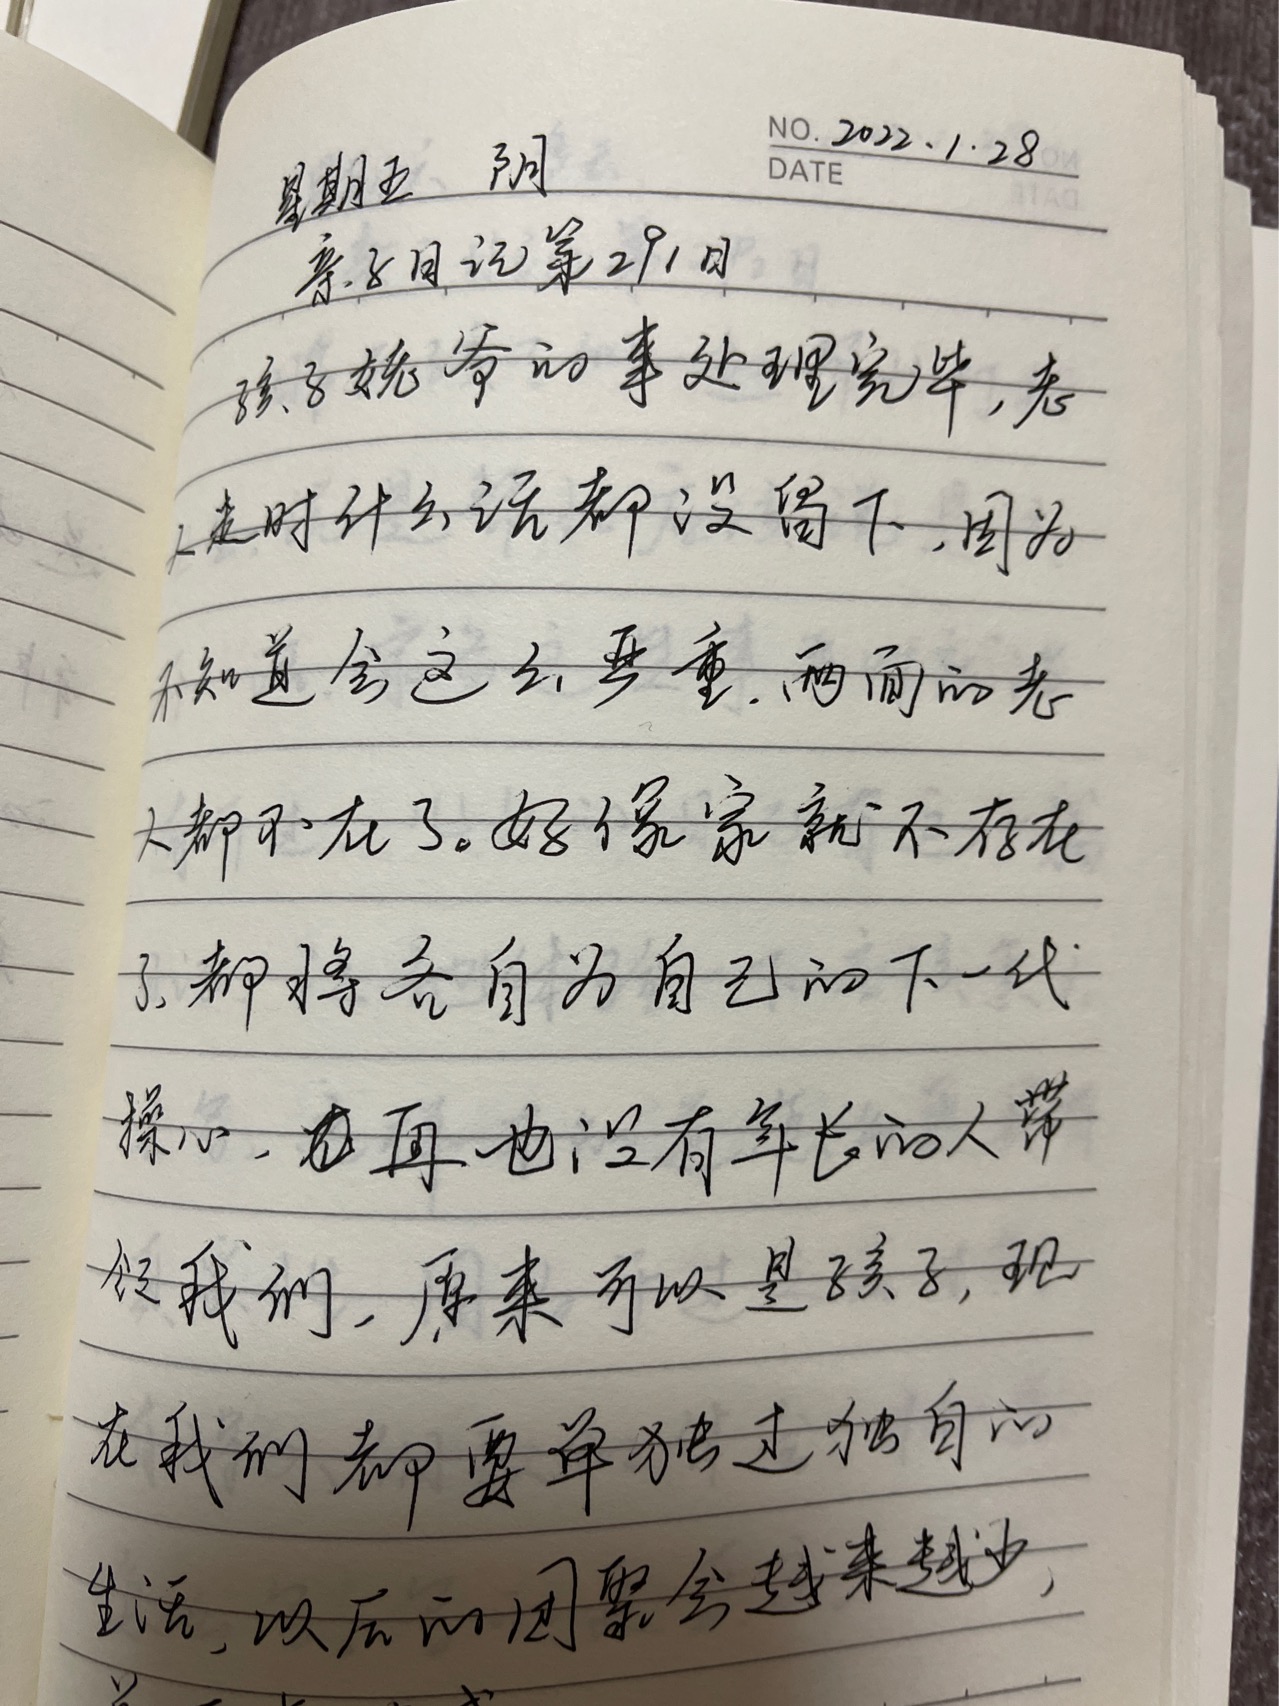 NO. 2022.1.28
DATE
星期五 阴
亲子日记第291日
孩子姥爷的事处理完毕，老
人走时什么话都没留下，因为
不知道会这么严重，两面的老
人都不在了。好像家就不存在
了，都将各自为自己的下一代
操心，再也没有年长的人带
领我们，原来可以是孩子，现
在我们都要单独过独自的
生活，以后的团聚会越来越少，